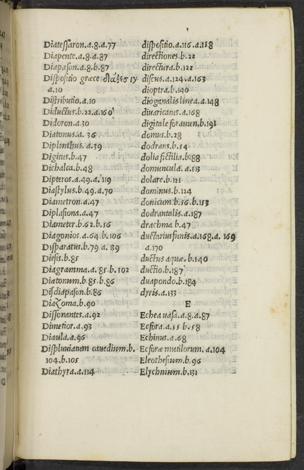 Diatessaron.a.8.a.77
Diapente.a.8.a.87
Diapason.a.8.b.87
Dispositio grece διάξεσ ιγ
a.10
Distributio.a.10
Diductus.b.22.a.160
Didoron.a.30
Diatonus.a.36
Diplinthus.a.39
Digitus.b.47
Dichalca.b.48
Dipteros.a.49.a.119
Diastylus.b.49.a.70
Diametron.a.47
Diplasiona.a.47
Diameter.b.62.b.16
Diagonios.a.64.b.106
Disparatus.b.79.a.89
Diesis.b.85
Diagramma.a.85.b.102
Diatonum.b.85.b.86
Disdiapason.b.86
Diazoma.b.90
Dissonantes.a.92
Dimetior.a.93
Diaula.a.96
Displuuiatum cauedium.b.
104.b.105
Diathyra.a.114
dispositio.a.116.a.118
directiones.b.21
directura.b.121
discus.a.124.a.163
dioptra.b.140
diogonalis linea.a.148
diuaricatus.a.168
digitale foramen.b.191
domus.b.28
dodrans.b.14
dolia fictilia.b.88
domuncula.a.113
dolare.b.121
dominus.b.124
donicium.b.56.b.113
dodrantalis.a.187
drachma.b.47
ductarius funis.a.168.a.169
a.170
ductus aquæ.b.140
ductio.b.187
duapondo.b.184
dyris.a.133
E
Echea uasa.a.8.a.87
Ecfora.a.15.b.58
Echinus.a.68
Ecforæ mutilorum.a.104
Eleothesium.b.96
Elychnium.b.131